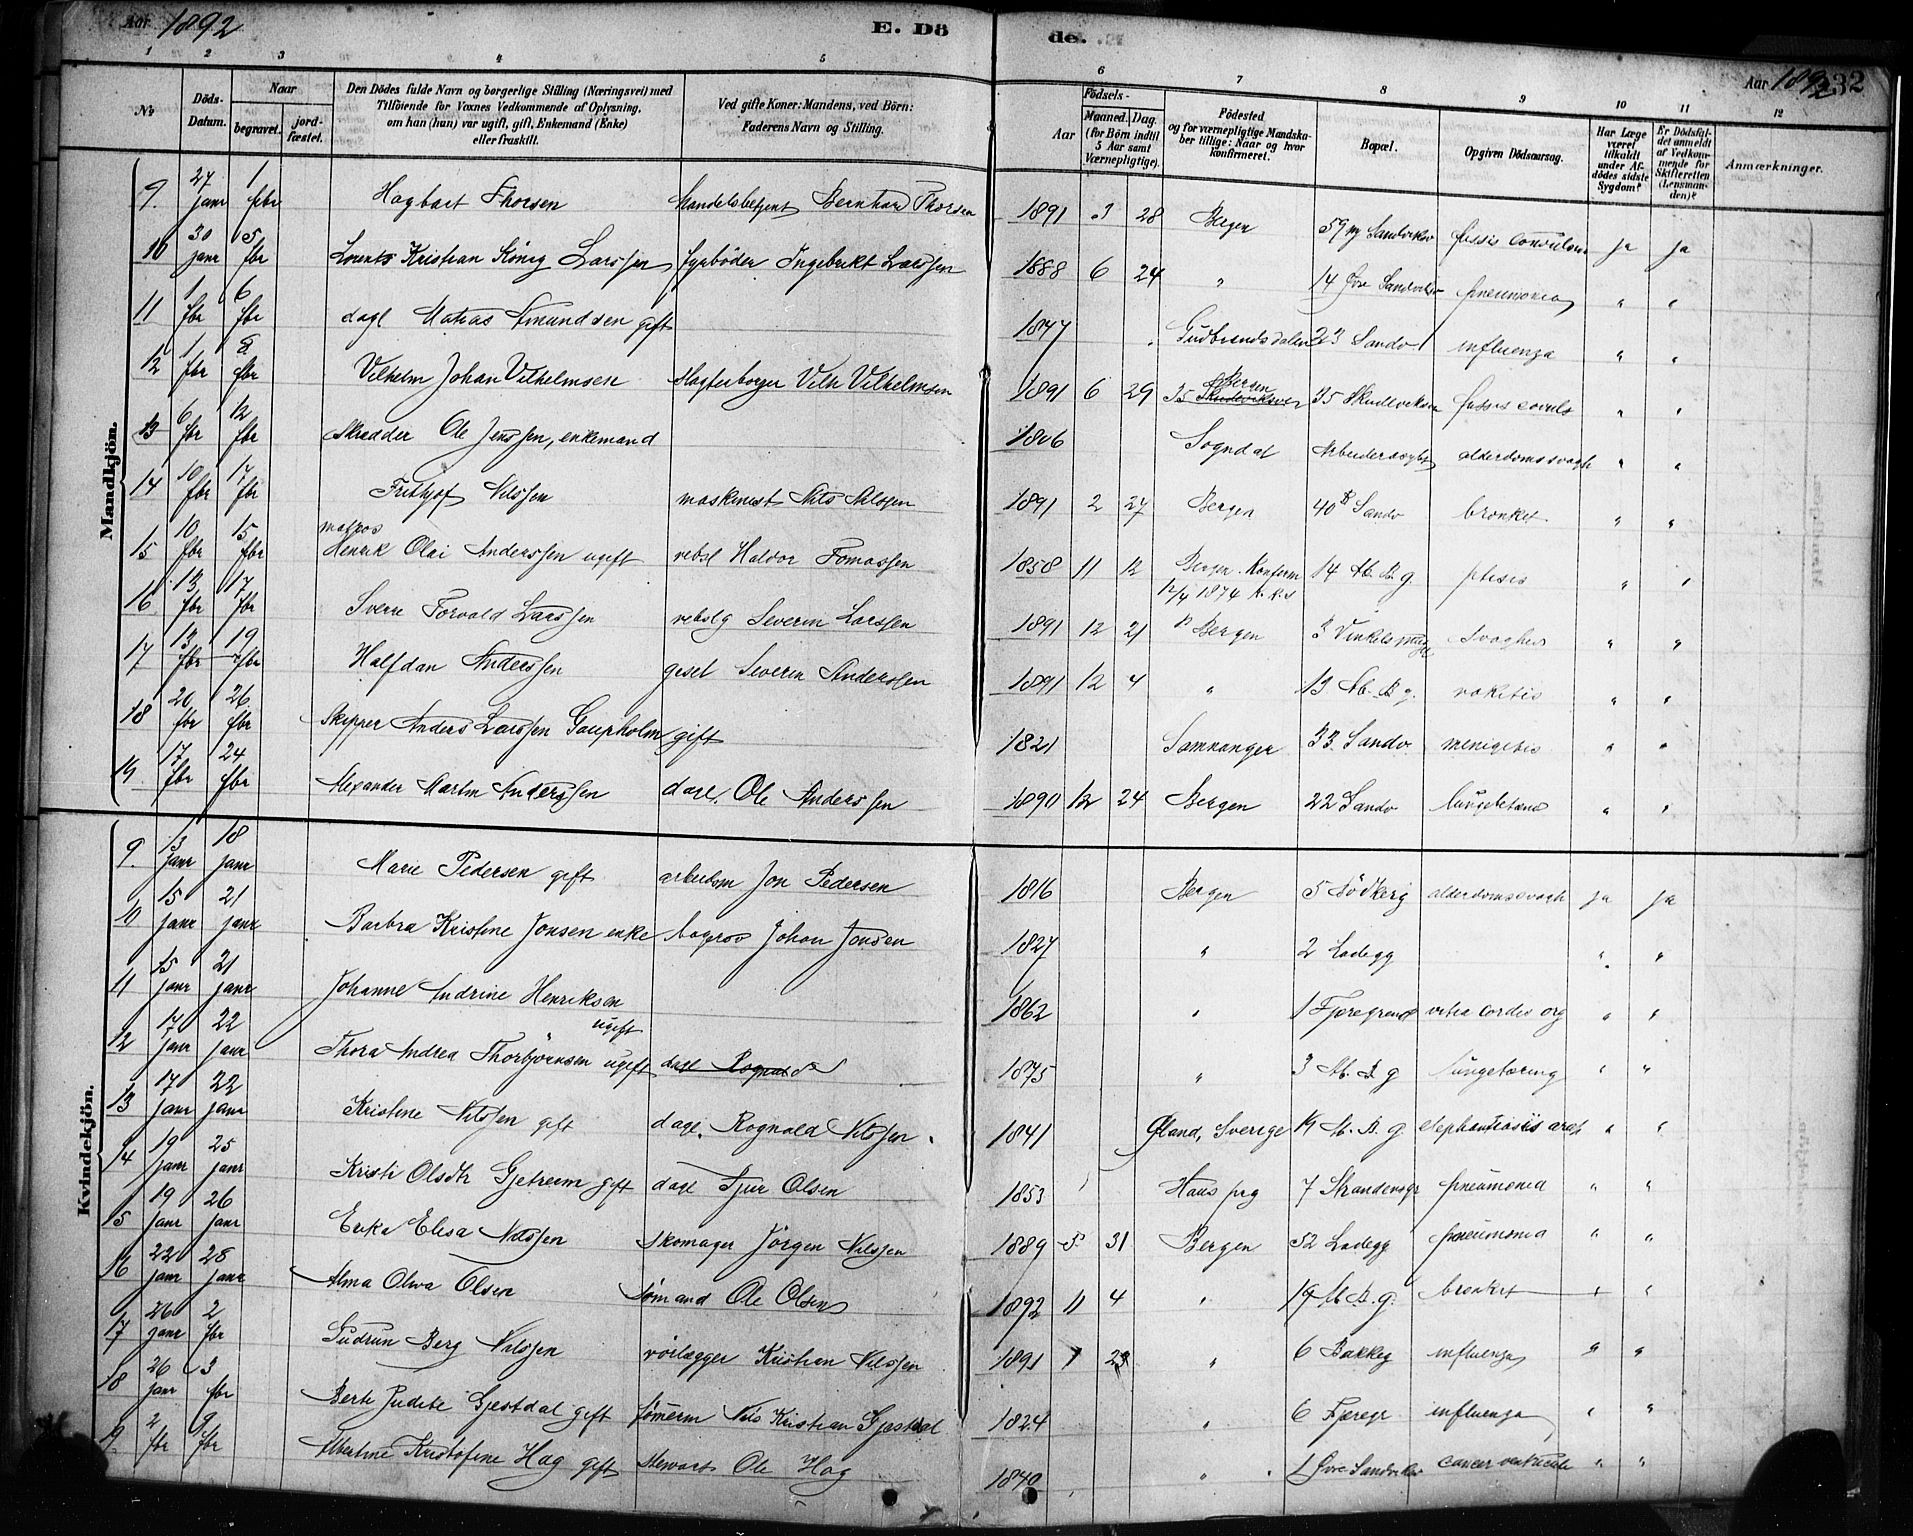 Aar 1892 E. Dö de. Aar 1892 32
1 2 3 4 5 6 7 8 9 10 11 12
No Döds-Datum. Naar begravet. jord-fæstet. Den Dödes fulde Navn og borgerlige Stilling (Næringsvei) med Tilföiende for Voxnes Vedkommende af Oplysning, om han (hun) var ugift, gift, Enkemand (Enke) eller fraskilt. Ved gifte Koner: Mandens, ved Börn: Faderens Navn og Stilling. Födsels- Aar Maaned. Dag. (for Börn indtil 5 Aar samt Værnepligtige). Födested og for værnepligtige Mandskaber tillige: Naar og hvor konfirmeret. Bopæl. Opgiven Dödsaarsag. Har Læge været tilkaldt under Afdödes sidste Sygdom? Er Dödsfaldet anmeldt af Vedkommende for Skifteretten (Lensmanden)? Anmærkninger.
Mandkjön.
9. 27 janr 1 fbr Hagbart Thorsen Handelsbetjent Bernhard Thorsen 1891 3 28 Bergen 59 ny Sandviksv ja ja
10 30 janr 5 fbr Lorents Kristian König Larssen Fyrböder Ingebrikt Larssen 1888 6 24 " 14 Øvre Sandviksv pneumonia " "
11 1 fbr 6 fbr dagl Matias Amundsen gift 1847 Gudbrandsdalen 23 Sandv influenza " "
12 1 fbr 8 fbr Vilhelm Johan Vilhelmsen Slagterborger Vilh Vilhelmsen 1891 6 29 Bergen 35 Skudeviksv 35 Skudeviksv " "
13 6 fbr 12 fbr Skredder Ole Jenssen, enkemand 1806 Sogndal Arbeiderasylet alderdomssvagh " "
14 10 fbr 17 fbr Frithjof Nilssen maskinist Nils Nilssen 1891 2 27 Bergen 40 B Sandv bronkit " "
15 10 fbr 15 fbr matros Henrik Olai Anderssen ugift rebsl Haldor Tomassen 1858 11 12 Bergen. Konfirm 12/4 1874 14 M. B. g ptisis " "
16 13 fbr 17 fbr Sverre Torvald Larssen rebslg Severin Larssen 1891 12 21 Bergen 3 Vinkelsmug svaghed " "
17 13 fbr 19 fbr Halfdan Anderssen gesel Severin Anderssen 1891 12 4 " 13 M. B g. rakitis " "
18 20 fbr 26 fbr Skipper Anders Larssen Gaupholm gift 1821 Samnanger 33 Sandv. menigitis " "
19 17 fbr 24 fbr Alexander Martin Anderssen dagl. Ole Anderssen 1890 12 24 Bergen 22 Sandv lungebetænd " "
Kvindekjön.
9. 13 janr 18 janr Marie Pedersen gift arbeidsm Jon Pedersen 1816 Bergen 5 alderdomssvagh ja ja
10 15 janr 21 janr Barbra Kristine Jonsen enke Johan Jonsen 1827 " 2 Ladegg " "
11 15 janr 21 janr Johanne Andrine Henriksen ugift 1862 " 1 Fjæregrend vitia cordis org " "
12 17 janr 22 janr Thora Andrea Thorbjörnsen ugift dagl 1875 " 3 M. B g lungetæring " "
13 17 janr 22 janr Kristine Nilssen gift dagl. Rognald Nilssen 1841 Øland, Sverige 14 M. B. g elephantiasis arab " "
14 19 janr 25 janr Kristi Olsdtr Gjetreim gift dagl Sjur Olsen 1853 Haus prg 7 Strandensgr pneumonia " "
15 19 janr 26 janr Erika Elisa Nilssen Skomager Jörgen Nilssen 1889 5 31 Bergen 52 Ladegg pneumonia " "
16 22 janr 28 janr Alma Oliva Olsen Sömand Ole Olsen 1892 11 4 " 19 M. B. g. bronkit " "
17 26 janr 2 fbr Gudrun Berg Nilssen Kristian Nilssen 1891 1 23 " 6 Bakkeg influenza " "
18 26 janr 3 fbr Berte Judite Gjestdal gift Nils Kristian Gjestdal 1824 " 6 Fjæregr influenza " "
19. 2 fbr 9 fbr Albertine Kristofine Hag gift Stewart Ole Hag 1840 " 1 Øvre Sandviksv cancer ventriculi " "